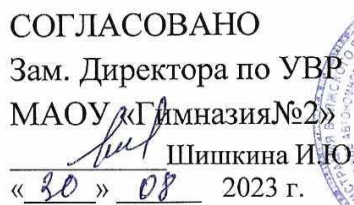 СОГЛАСОВАНО
Зам. Директора по УВР
МАОУ «Гимназия№2»
Шишкина И.Ю
« 30 » 08 2023 г.